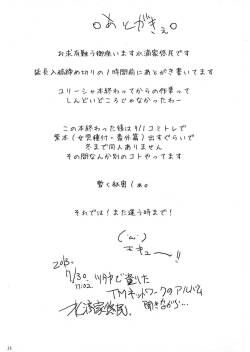 ○あとがき○
お求有難う御座います水滴家悠民です
延長入稿締め切りの1時間前にあとがき書いてます
コリーシャ本終わってからの作業って
しんどいどころじゃなかったわー
この本終わった後は9/1コミトレで
薬本(女男種付・番外篇)出すぐらいで
冬まで同人ありません
その間なんか別のコトやってます
暫く秘密(ぁ。
それでは!また逢う時まで!
(´ω`)
2013.
7/30
17:02
TMネットワークのアルバム
聞きながら…